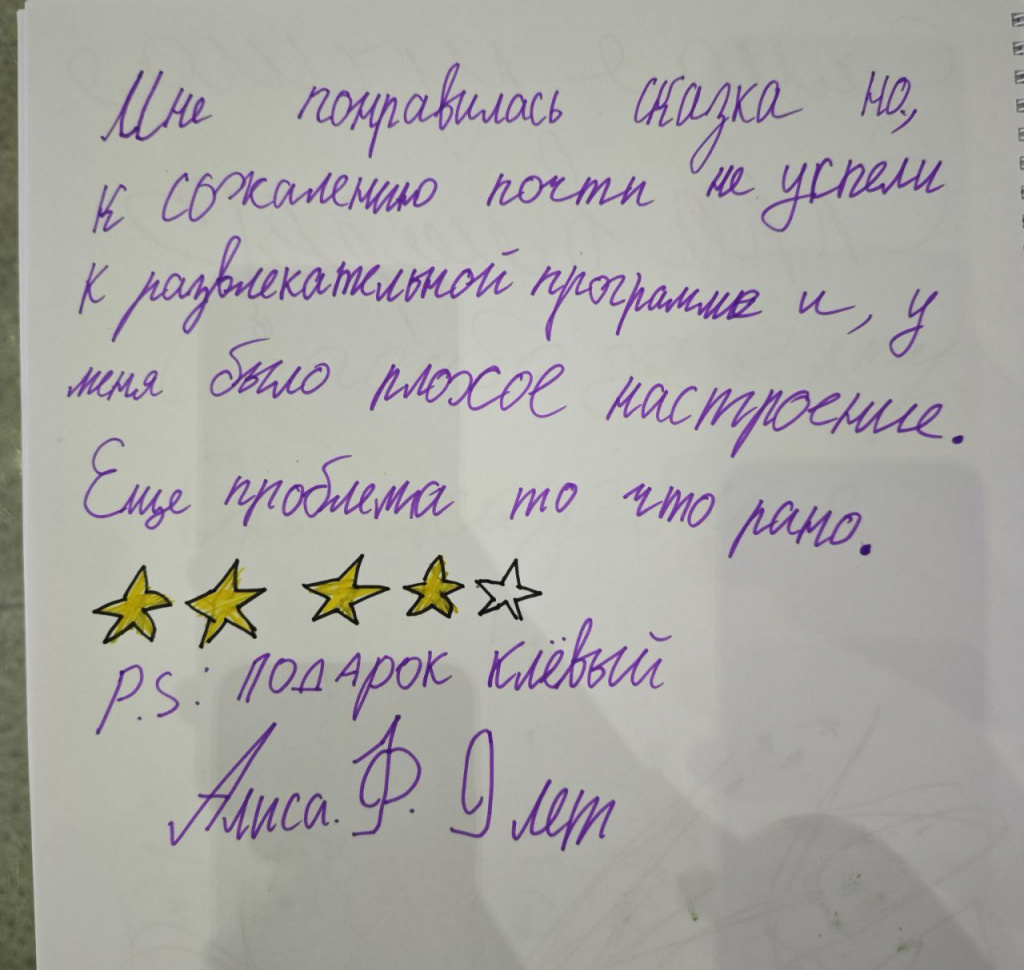 Мне понравилась сказка но,
к сожалению почти не успели
к развлекательной программе и, у
меня было плохое настроение.
Еще проблема то что рано.
P.S: подарок клёвый
Алиса. Ф. 9 лет